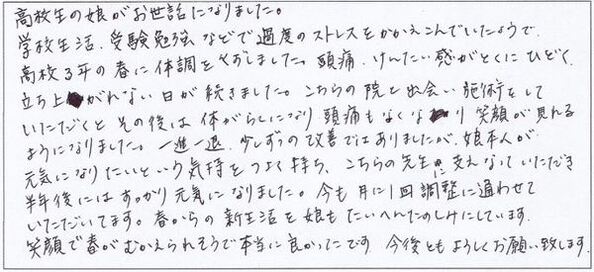 高校生の娘がお世話になりました。
学校生活、受験勉強などで過度のストレスをかかえこんでいたようで、
高校3年の春に体調をくずしました。頭痛、けんたい感がとくにひどく、
立ち上がれない日が続きました。こちらの院と出会い施術をして
いただくと その後は体がらくになり 頭痛もなくなり 笑顔が見れる
ようになりました。一進一退、少しずつの改善ではありましたが、娘本人が
元気になりたいという気持をつよく持ち、こちらの先生に支えなっていただき
半年後にはすっかり元気になりました。今も月に1回調整に通わせて
いただいてます。春からの新生活を娘もたいへんたのしみにしています。
笑顔で春がむかえられそうで本当に良かったです 今後ともよろしくお願い致します。